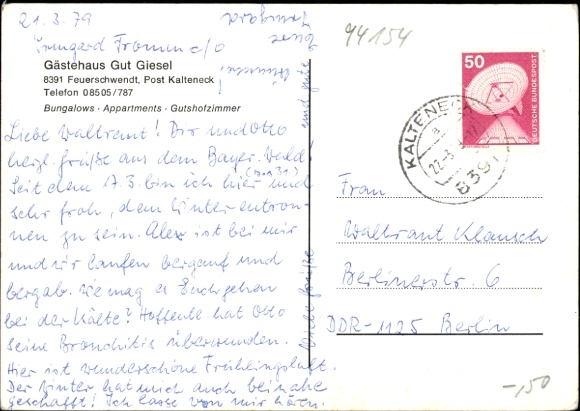 21.3.79
Irmgard Fromm c/o
Gästehaus Gut Giesel
8391 Feuerschwendt, Post Kalteneck
Telefon 08505/787
Bungalows · Appartments · Gutshofzimmer
Liebe Waltraut! Dir und Otto
herzl. Grüße aus dem Bayer. Wald!
Seit dem 7.3. bin ich hier und
(bis 31.)
sehr froh, dem Winter entron-
nen zu sein. Alex ist bei mir
und wir laufen bergauf und
bergab. Wie mag es Euch gehen
bei der Kälte? Hoffentl. hat Otto
seine Bronchitis überwunden.
Hier ist wunderschöne Frühlingsluft.
Der Winter hat mich auch beinahe
geschafft! Ich lasse von mir hören.
Viele Grüße
und gute
94154
50
DEUTSCHE BUNDESPOST
KALTENECK
8391
Frau
Waltraut Klausch
Berlinerstr. 6
DDR-1125 Berlin
-,50